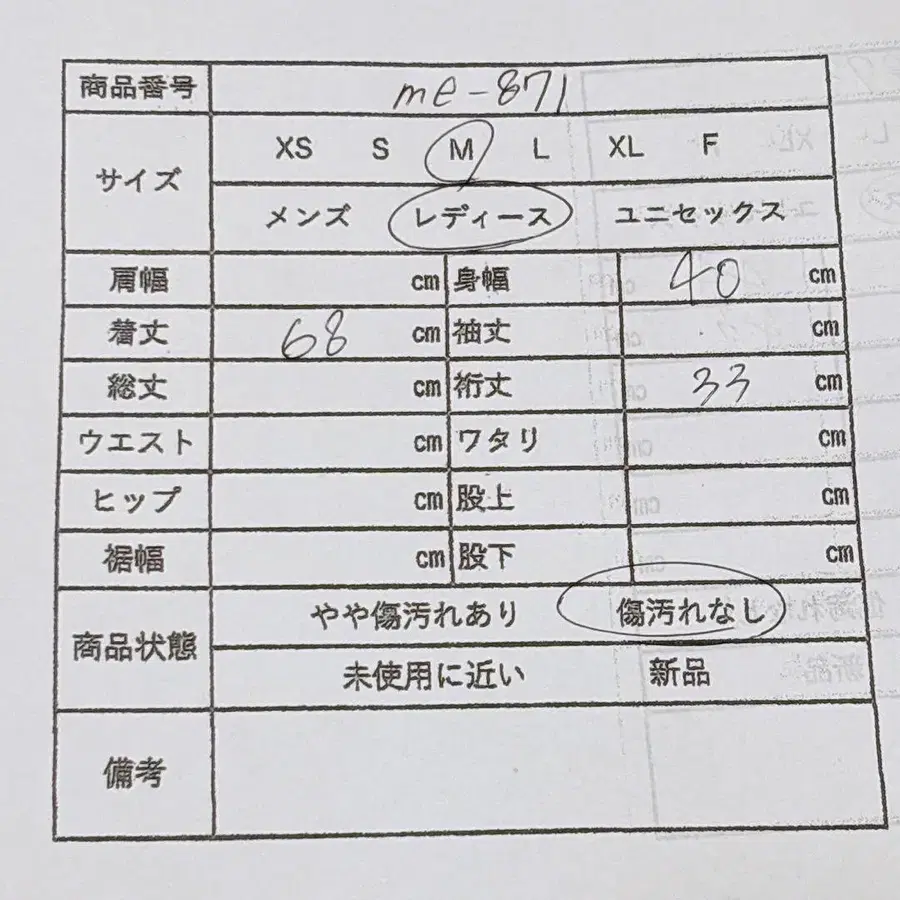 商品番号 me-871
サイズ XS S M L XL F
メンズ レディース ユニセックス
肩幅 cm 身幅 40 cm
着丈 68 cm 袖丈 cm
総丈 cm 裄丈 33 cm
ウエスト cm ワタリ cm
ヒップ cm 股上 cm
裾幅 cm 股下 cm
商品状態 やや傷汚れあり 傷汚れなし
未使用に近い 新品
備考